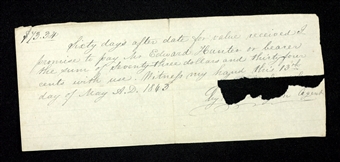 $73.24
Sixty days after date for value received I
promise to pay Mr Edward Hunter or bearer
the sum of Seventy three dollars and thirty four
cents with use. Witness my hand this 13th
day of May A.D. 1843